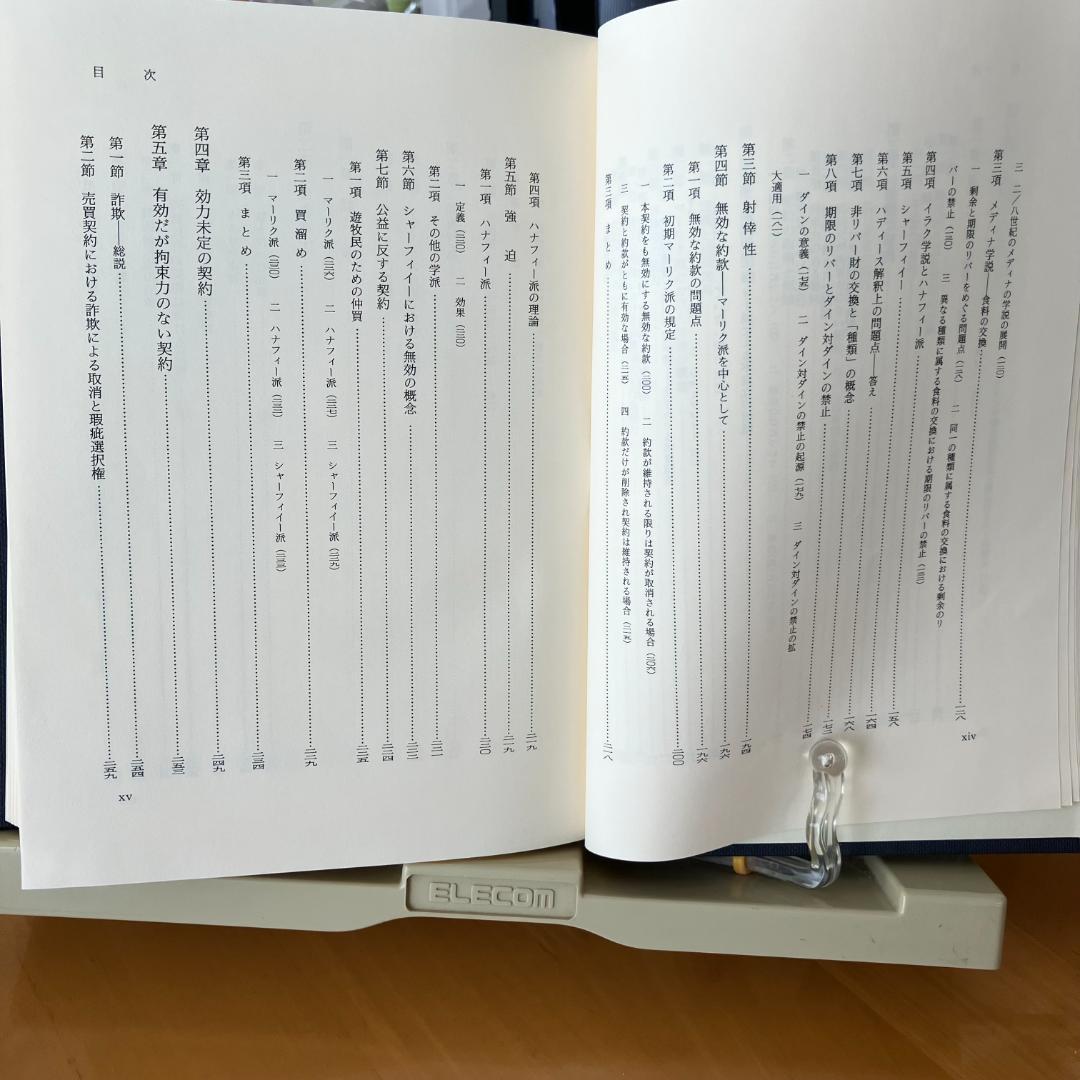 三 二/八世紀のメディナの学説の展開
第三項 メディナ学説――食料の交換……一三八
一 剰余と期限のリバーをめぐる問題点 二 同一の種類に属する食料の交換における剰余のリ
バーの禁止 三 異なる種類に属する食料の交換における期限のリバーの禁止
第四項 イラク学説とハナフィー派
第五項 シャーフィイー……一五八
第六項 ハディース解釈上の問題点――答え……一六四
第七項 非リバー財の交換と「種類」の概念……一六八
第八項 期限のリバーとダイン対ダインの禁止
一 ダインの意義(一七五) 二 ダイン対ダインの禁止の起源(一七九) 三 ダイン対ダインの禁止の拡
大適用(一八一)……一七四
第三節 射倖性……一九四
第四節 無効な約款――マーリク派を中心として……一九六
第一項 無効な約款の問題点……一九六
第二項 初期マーリク派の規定……二〇〇
一 本契約をも無効にする無効な約款(二〇〇) 二 約款が維持される限りは契約が取消される場合(二〇六)
三 契約と約款がともに有効な場合(二一五) 四 約款だけが削除され契約は維持される場合(二一五)
第三項 まとめ……二一八
xiv
目次
第四項 ハナフィー派の理論……二一九
第五節 強迫……二一九
第一項 ハナフィー派……二二〇
一 定義(二二〇) 二 効果(二二〇)
第二項 その他の学派
第六節 シャーフィイーにおける無効の概念
第七節 公益に反する契約……二二四
第一項 遊牧民のための仲買……二二五
一 マーリク派(二二六) 二 ハナフィー派(二二七) 三 シャーフィイー派(二二九)
第二項 買溜め……二二九
一 マーリク派 二 ハナフィー派 三 シャーフィイー派
第三項 まとめ……二三四
第四章 効力未定の契約……二四九
第五章 有効だが拘束力のない契約……二五三
第一節 詐欺――総説……二五四
第二節 売買契約における詐欺による取消と瑕疵選択権……二五九
xv
ELECOM